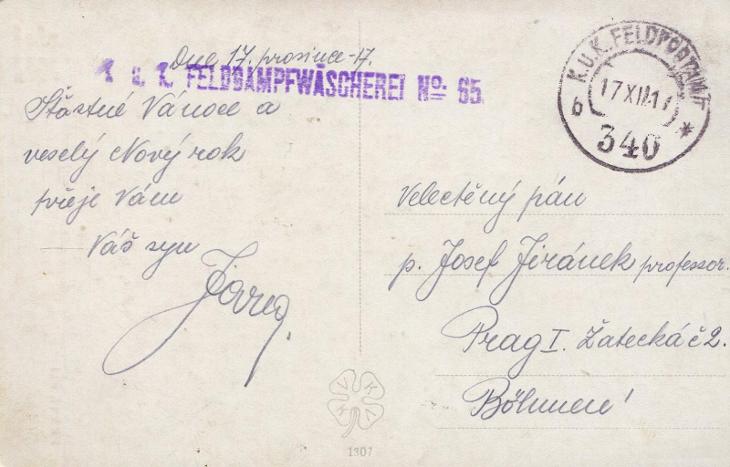 Dne 17. prosince-17.
K. u. K. FELDDAMPFWÄSCHEREI No: 65.
Šťastné Vánoce a
veselý Nový rok
přeje Vám
Váš syn
Jara.
K.U.K. FELDPOSTAMT
b 17 XII 17 *
340
Velectěný pán
p. Josef Jiránek professor.
Prag I. Žatecká č 2.
Böhmen!
1307